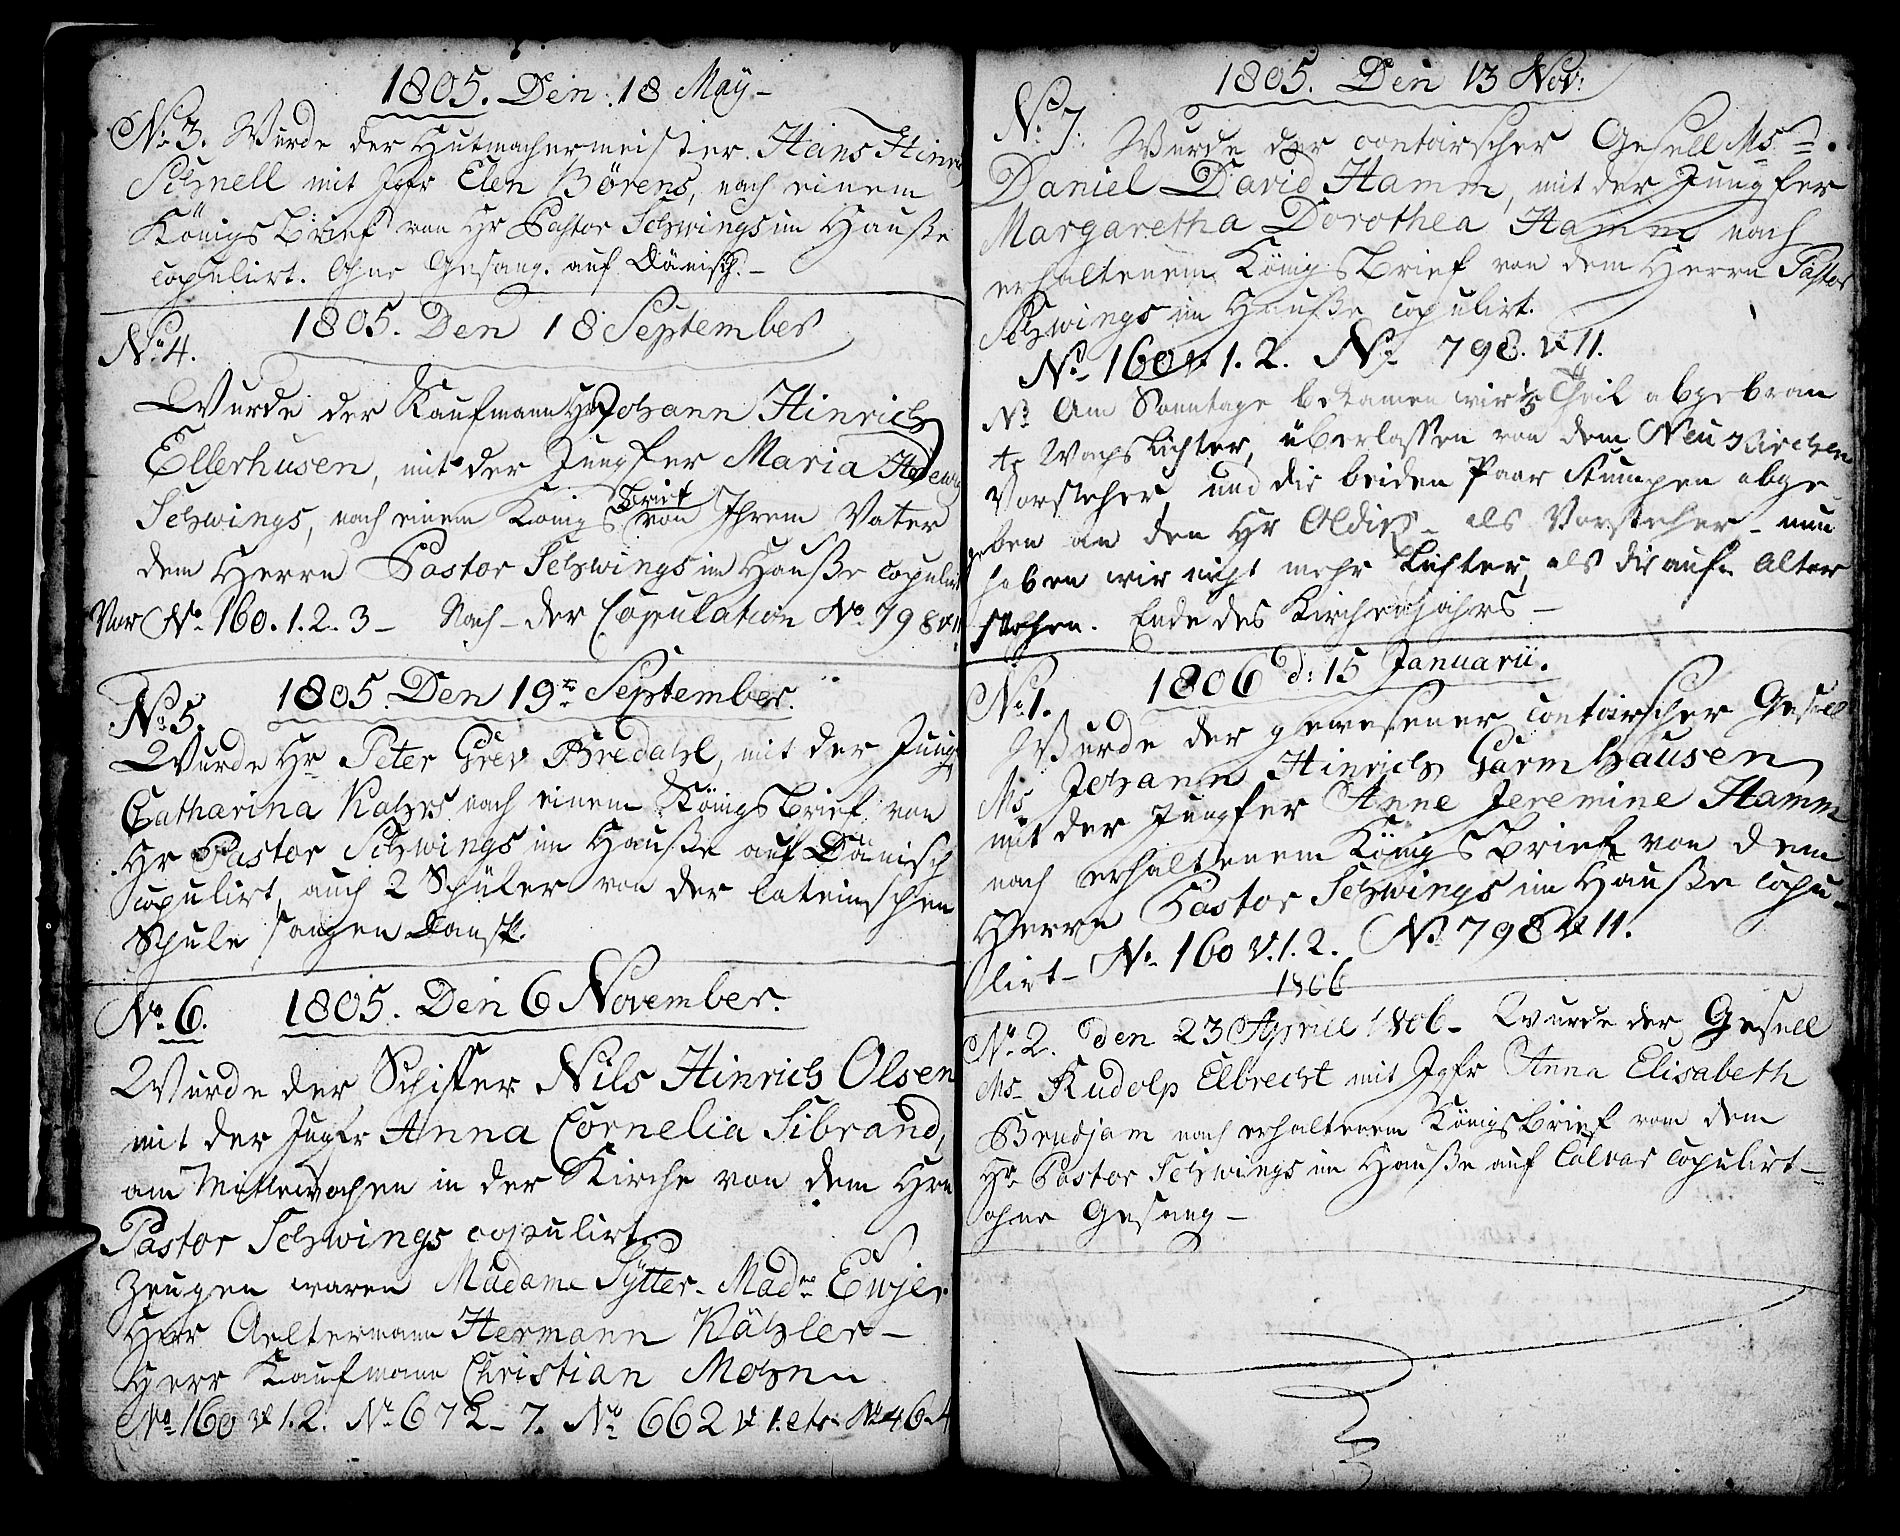 1805. Den 18 Maÿ -
No 3. Wurde der Hutmachermeister Hans Hinri
Schnell mit Jgfr Elen Börens, nach einem
Königs Brief von Hr Pastor Schwings im Hauße
copulirt. Ohne Gesang. auf Dänisch. -
1805. Den 18 September
No 4.
Wurde der Kaufmann Hr Johann Hinrich
Ellerhusen, mit der Jungfer Maria Hedewig
Schwings, nach einem Königs Brief von Ihrem Vater
dem Herrn Pastor Schwings im Hauße copulirt
Vor No 160. 1. 2. 3 - Nach - der Copulation No 798 v 11
1805. Den 19ten September.
No 5.
Wurde Hr Peter Grev Bredahl, mit der Jungf
Catharina Kahrs nach einem Königs Brief von
Hr Pastor Schwings im Hauße auf Dänisch
copulirt, auch 2 Schüler von der lateinschen
Schule sangen Dansk.
No 6. 1805. Den 6 November.
Wurde der Schiffer Nils Hinrich Olsen
mit der Jugfr Anna Cornelia Sibrand,
am Mittewochen in der Kirche von dem Hrn
Pastor Schwings copulirt
Zeugen waren Madame Sÿtter - Made Ewjer
Herr Aeltermann Hermann Kähler -
Herr Kaufmann Christian Mohn
No 160 v 1. 2. No 672 - 7. No 662 v 1. etc No 464
1805. Den 13 Nov:
No 7. Wurde der contoirscher Gesell Ms.
Daniel David Hamm, mit der Jungfer
Margaretha Dorothea Hamm nach
erhaltenem Königs Brief von dem Herrn Pastor
Schwings im Hauße copulirt.
No 160 v 1. 2. No 798. v 11.
NB Am Sonntage bekamen wir Theil abgebran
te Wachslichter, überlassen von dem Neu Kirchen
Vorsteher, und die beiden Paar Stumpen abge
geben an den Hr Oldis - als Vorsteher - nun
haben wir nicht mehr Lichter, als die aufn Altar
stehen. Ende des Kirchenjahrs -
1806 d: 15 Januarii.
No 1.
Wurde der gewesener contoirscher Gesell
Ms Johann Hinrich Garmhausen
mit der Jungfer Anne Jeremine Hamm
nach erhaltenem Königs Brief von dem
Herrn Pastor Schwings im Hauße copu-
lirt - No 160 v. 1. 2. No 798 v 11.
1806
No 2. den 23 Aprill 1806 - Wurde der Gesell
Ms Rudolp Elbrecht mit Jgfr Anna Elisabeth
Brudjam nach erhaltenem Königs Brief von dem
Hr Pastor Schwings im Hauße auf Calvar copulirt -
ohne Gesang -